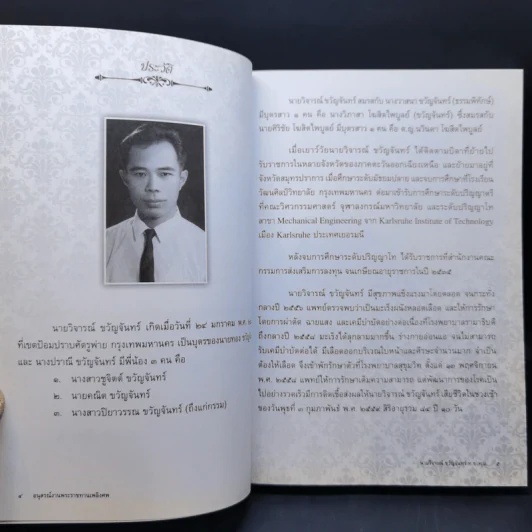 ประวัติ
นายวิจารณ์ ขวัญจันทร์ เกิดเมื่อวันที่ ๒๔ มกราคม พ.ศ.
ที่เขตป้อมปราบศัตรูพ่าย กรุงเทพมหานคร เป็นบุตรของนายทอง
และ นางปราณี ขวัญจันทร์ มีพี่น้อง ๓ คน คือ
๑. นางสาวชูจิตต์ ขวัญจันทร์
๒. นายคณิต ขวัญจันทร์
๓. นางสาวปิยาวรรณ ขวัญจันทร์ (ถึงแก่กรรม)
๔ อนุสรณ์งานพระราชทานเพลิงศพ
นายวิจารณ์ ขวัญจันทร์ สมรสกับ นางวาสนา ขวัญจันทร์ (ธรรมพิทักษ์)
มีบุตรสาว ๑ คน คือ นางวิภาสา โฆสิตไพบูลย์ (ขวัญจันทร์) ซึ่งสมรสกับ
นายศิริชัย โฆสิตไพบูลย์ มีบุตรสาว ๑ คน คือ ด.ญ.นรินดา โฆสิตไพบูลย์
เมื่อเยาว์วัยนายวิจารณ์ ขวัญจันทร์ ได้ติดตามบิดาที่ย้ายไป
รับราชการในหลายจังหวัดของภาคตะวันออกเฉียงเหนือ และย้ายมาอยู่ที่
จังหวัดสมุทรปราการ เมื่อศึกษาระดับมัธยมปลาย และจบการศึกษาที่โรงเรียน
วัฒนศิลป์วิทยาลัย กรุงเทพมหานคร ต่อมาเข้ารับการศึกษาระดับปริญญาตรี
ที่คณะวิศวกรรมศาสตร์ จุฬาลงกรณ์มหาวิทยาลัย และระดับปริญญาโท
สาขา Mechanical Engineering จาก Karlsruhe Institute of Technology
เมือง Karlsruhe ประเทศเยอรมนี
หลังจบการศึกษาระดับปริญญาโท ได้รับราชการที่สำนักงานคณะ
กรรมการส่งเสริมการลงทุน จนเกษียณอายุราชการในปี ๒๕๓๕
นายวิจารณ์ ขวัญจันทร์ มีสุขภาพแข็งแรงมาโดยตลอด จนกระทั่ง
กลางปี ๒๕๕๖ แพทย์ตรวจพบว่าเป็นมะเร็งผนังหลอดเลือด และให้การรักษา
โดยการผ่าตัด ฉายแสง และเคมีบำบัดอย่างต่อเนื่องที่โรงพยาบาลรามาธิบดี
ถึงกลางปี ๒๕๕๘ มะเร็งได้ลุกลามมากขึ้น ร่างกายอ่อนแอ จนไม่สามารถ
รับเคมีบำบัดต่อได้ มีเลือดออกบริเวณใบหน้าและศีรษะจำนวนมาก จำเป็น
ต้องให้เลือด จึงเข้าพักรักษาตัวที่โรงพยาบาลสุขุมวิท ตั้งแต่ ๑๓ พฤศจิกายน
พ.ศ. ๒๕๕๘ แพทย์ให้การรักษาเต็มความสามารถ แต่พัฒนาการของโรคเป็น
ไปอย่างรวดเร็วมีการติดเชื้อส่งผลให้นายวิจารณ์ ขวัญจันทร์ เสียชีวิตในช่วงเช้า
ของวันพุธที่ ๓ กุมภาพันธ์ พ.ศ. ๒๕๕๙ สิริอายุรวม ๘๔ ปี ๑๐ วัน